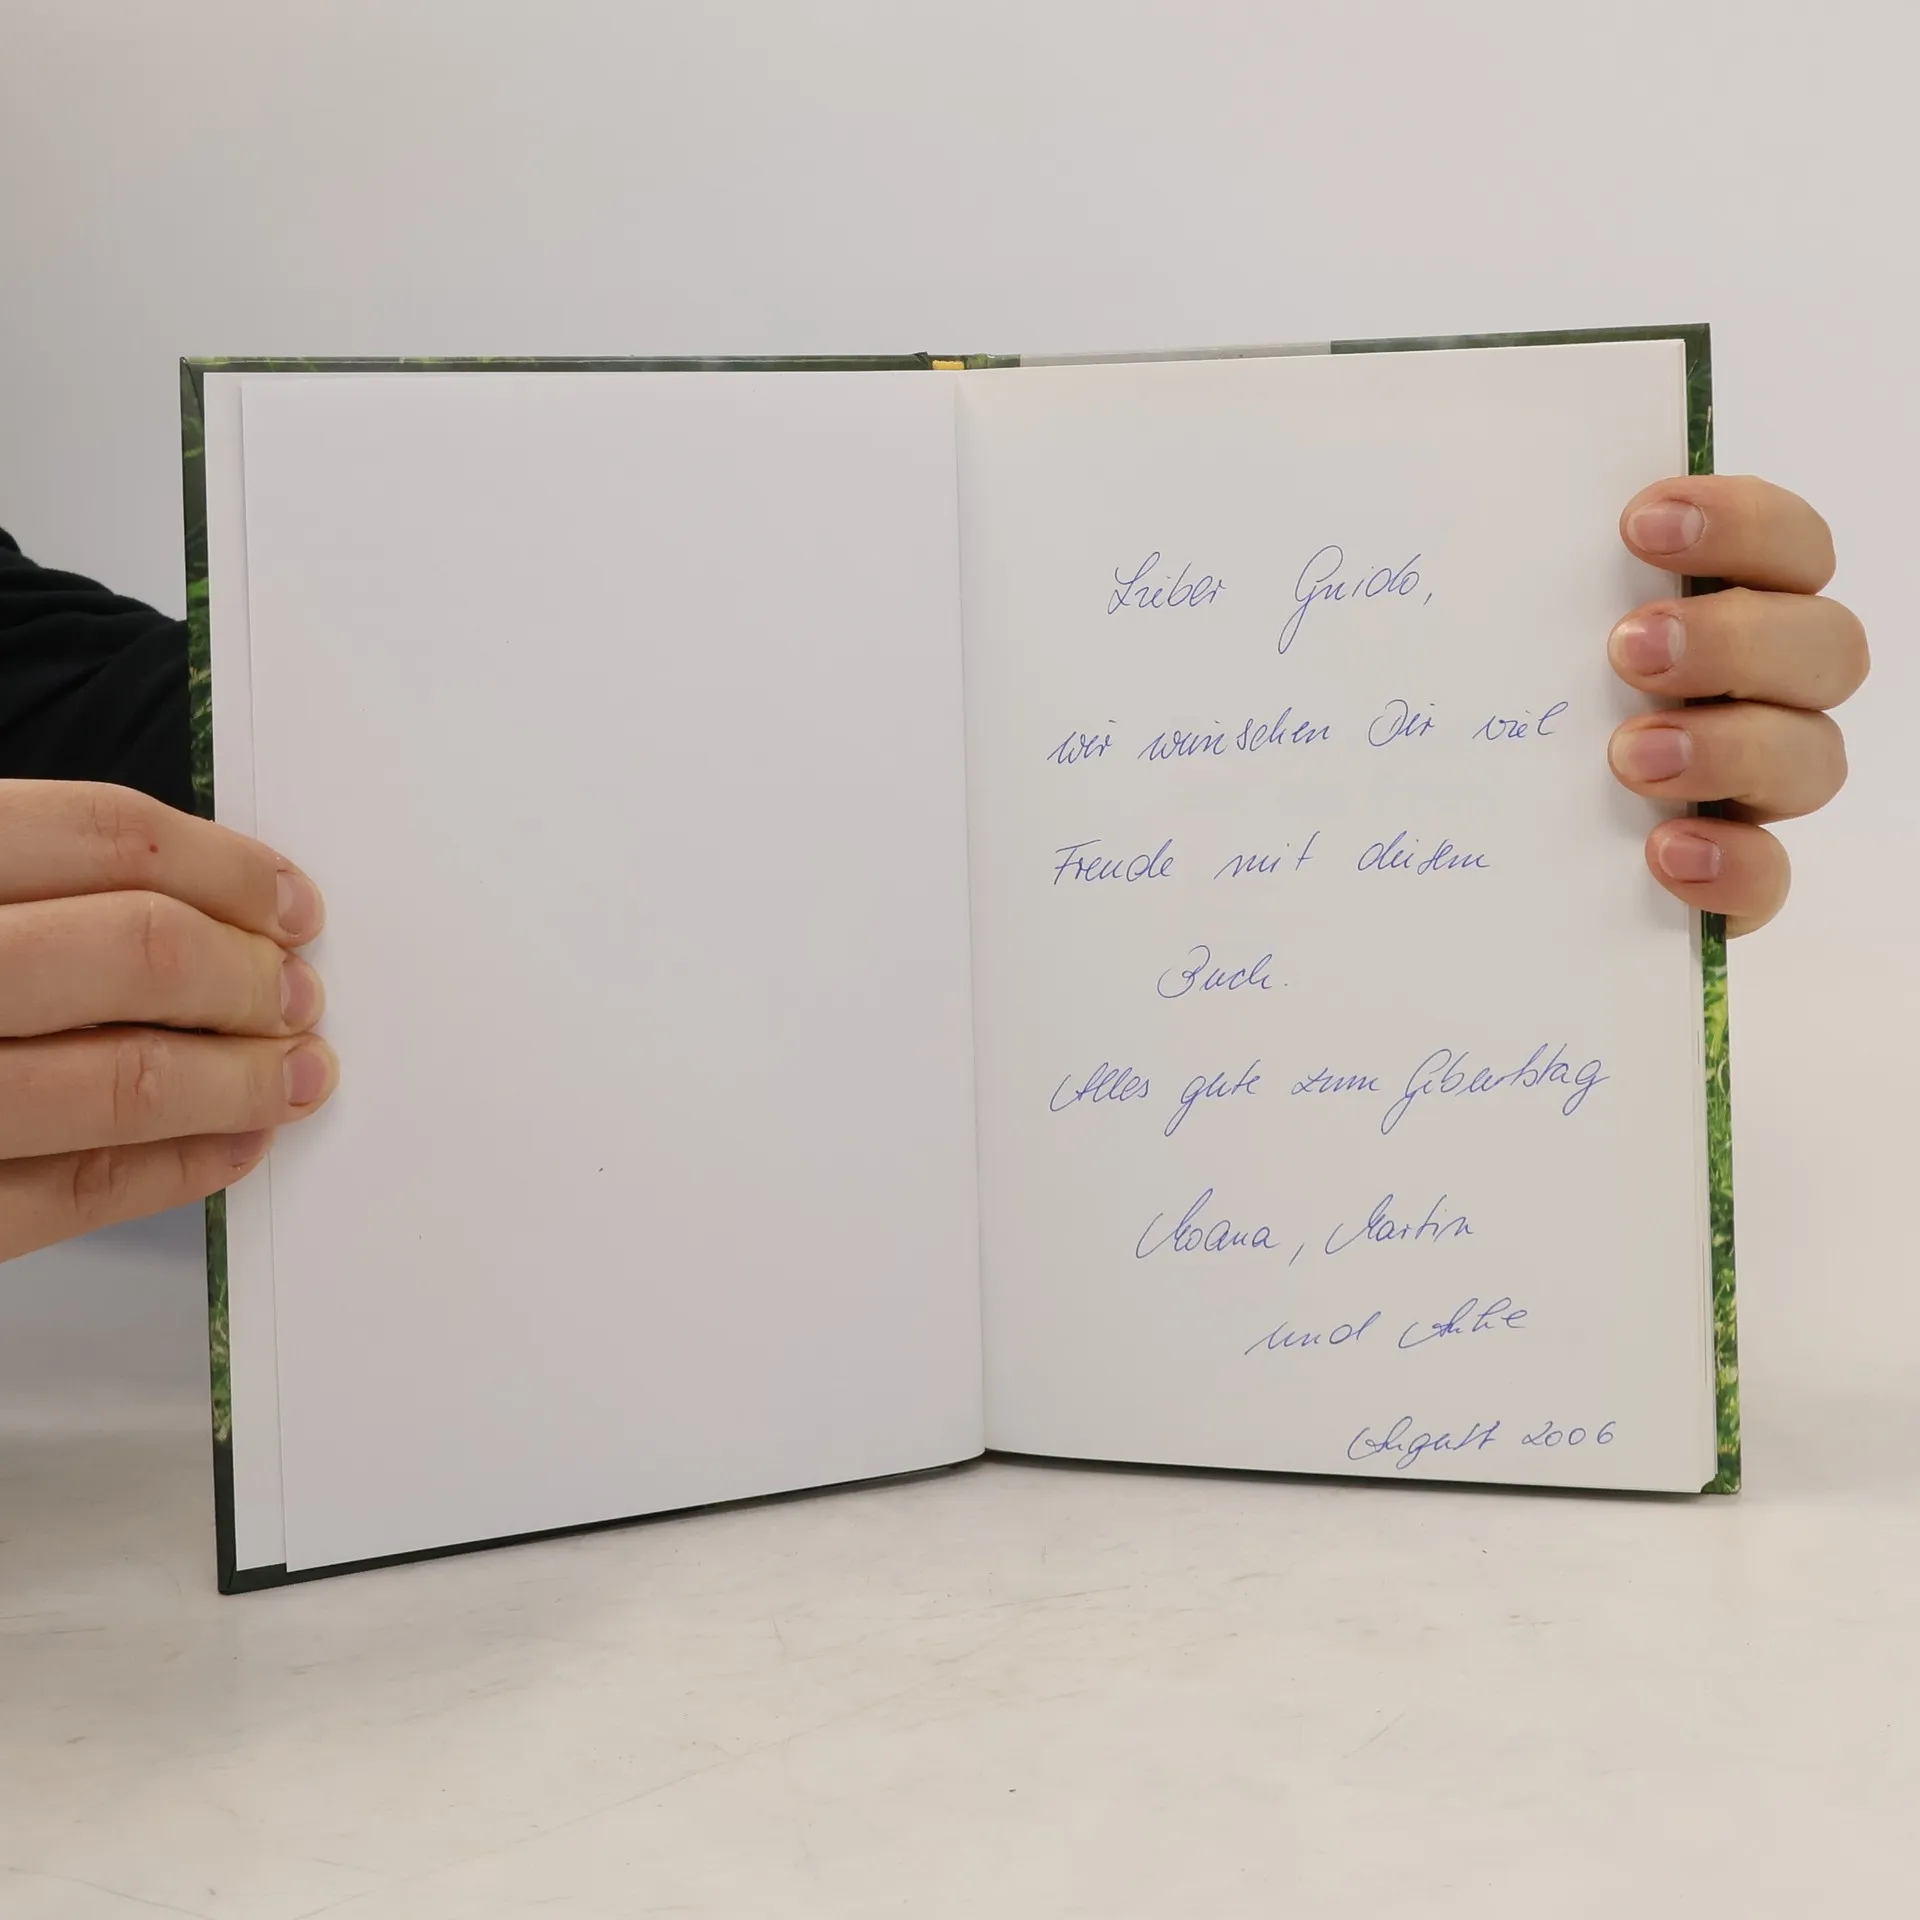 Lieber Guido,
wir wünschen Dir viel
Freude mit diesem
Buch.
Alles gute zum Geburtstag
Moana, Martin
und Anke
August 2006